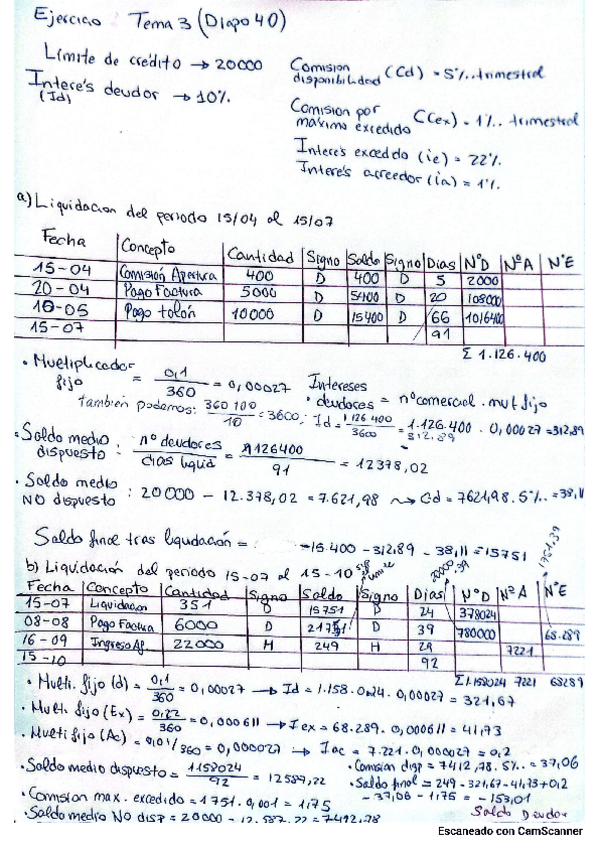 Ejercicio Tema 3 (Diapo 40)
Límite de crédito → 20000
Interes deudor → 10%.
(Id)
Comision disponibilidad (Cd) = 5%.. trimestral
Comision por maximo excedido (C(ex) = 1%.. trimestral
Interes excedido (ie) = 22%.
Interes acreedor (ia) = 1%.
a) Liquidacion del periodo 15/04 al 15/07
Fecha Concepto Cantidad Signo Saldo Signo Dias NºD NºA NºE
15-04 Comisión Apertura 400 D 400 D 5 2000
20-04 Pago Factura 5000 D 5400 D 20 108000
10-05 Pago talón 10000 D 15400 D 66 1016400
15-07 91
Σ 1.126.400
• Multiplicador fijo = 0,1/360 = 0,00027
Intereses deudores = nº comercial . mult fijo
también podemos: 360 100/10 = 3600: Id = 1126400/3600 = 312,89
= 1.126.400 . 0,00027 = 312,89
• Saldo medio dispuesto : nº deudores/dias liquid = 1126400/91 = 12378,02
• Saldo medio NO dispuesto : 20000 - 12.378,02 = 7.621,98 → Cd = 7621,98 . 5%.. = 38,11
Saldo final tras liquidación = -15.400 - 312,89 - 38,11 = 15751
b) Liquidación del periodo 15-07 al 15-10
20000,39
1751,39
Fecha Concepto Cantidad Signo Saldo Signo Dias NºD NºA NºE
15-07 Liquidacion 351 D 15751 D 24 378024
08-08 Pago Factura 6000 D 21751 D 39 780000 68.289
16-09 Ingreso Af. 22000 H 249 H 29 7221
15-10 92
Σ1.158024 7221 68289
• Multi. fijo (d) = 0,1/360 = 0,00027 → Id = 1.158.024 . 0,00027 = 321,67
• Mult. fijo (Ex) = 0,22/360 = 0,000611 → I ex = 68.289 . 0,000611 = 41,73
• Multi fijo (Ac) = 0,01/360 = 0,000027 → Iac = 7.221 . 0,000027 = 0,2
• Saldo medio dispuesto = 1158024/92 = 12587,22
• Comision disp = 7412,78 . 5%.. = 37,06
• Saldo final = 249 - 321,67 - 41,73 + 0,2 - 37,06 - 1,75 = - 153,01
• Comision max. excedido = 1751 . 0,001 = 1,75
Saldo Deudor
• Saldo medio NO DISP = 20000 - 12.587,22 = 7412,78
Escaneado con CamScanner